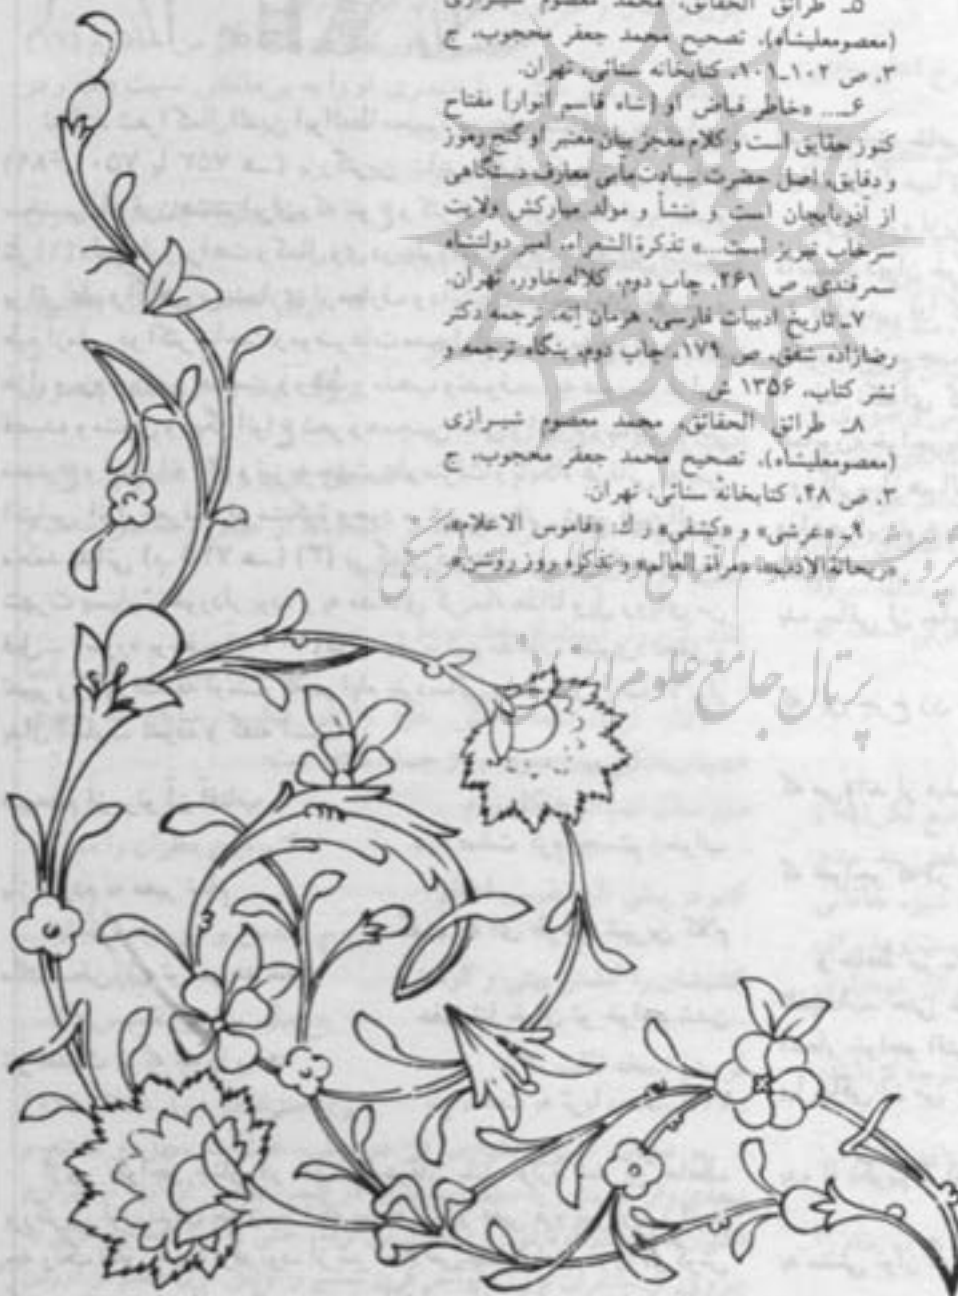 ۵ـ طرائق الحقائق، محمد معصوم شیرازی
(معصومعلیشاه)، تصحیح محمد جعفر محجوب، ج
۳، ص ۱۰۲ـ۱۰۱، کتابخانه سنائی، تهران.
۶ـ... «خاطر فیاض او [شاه قاسم انوار] مفتاح
کنوز حقایق است و کلام معجز بیان معتبر او گنج رموز
و دقایق، اصل حضرت سیادت مآبی معارف دستگاهی
از آذربایجان است و منشأ و مولد مبارکش ولایت
سرخاب تبریز است...» تذکرة الشعراء، امیر دولتشاه
سمرقندی، ص ۲۶۱، چاپ دوم، کلاله خاور، تهران.
۷ـ تاریخ ادبیات فارسی، هرمان اته، ترجمه دکتر
رضازاده شفق، ص ۱۷۹، چاپ دوم، بنگاه ترجمه و
نشر کتاب، ۱۳۵۶ ش.
۸ـ طرائق الحقائق، محمد معصوم شیرازی
(معصومعلیشاه)، تصحیح محمد جعفر محجوب، ج
۳، ص ۴۸، کتابخانهٔ سنائی، تهران.
۹ـ «عرشی» و «کشفی» رك: «قاموس الاعلام»،
«ریحانة الادب»، «مرآة العالم» و تذکره روز روشن».
پرتال جامع علوم انسانی